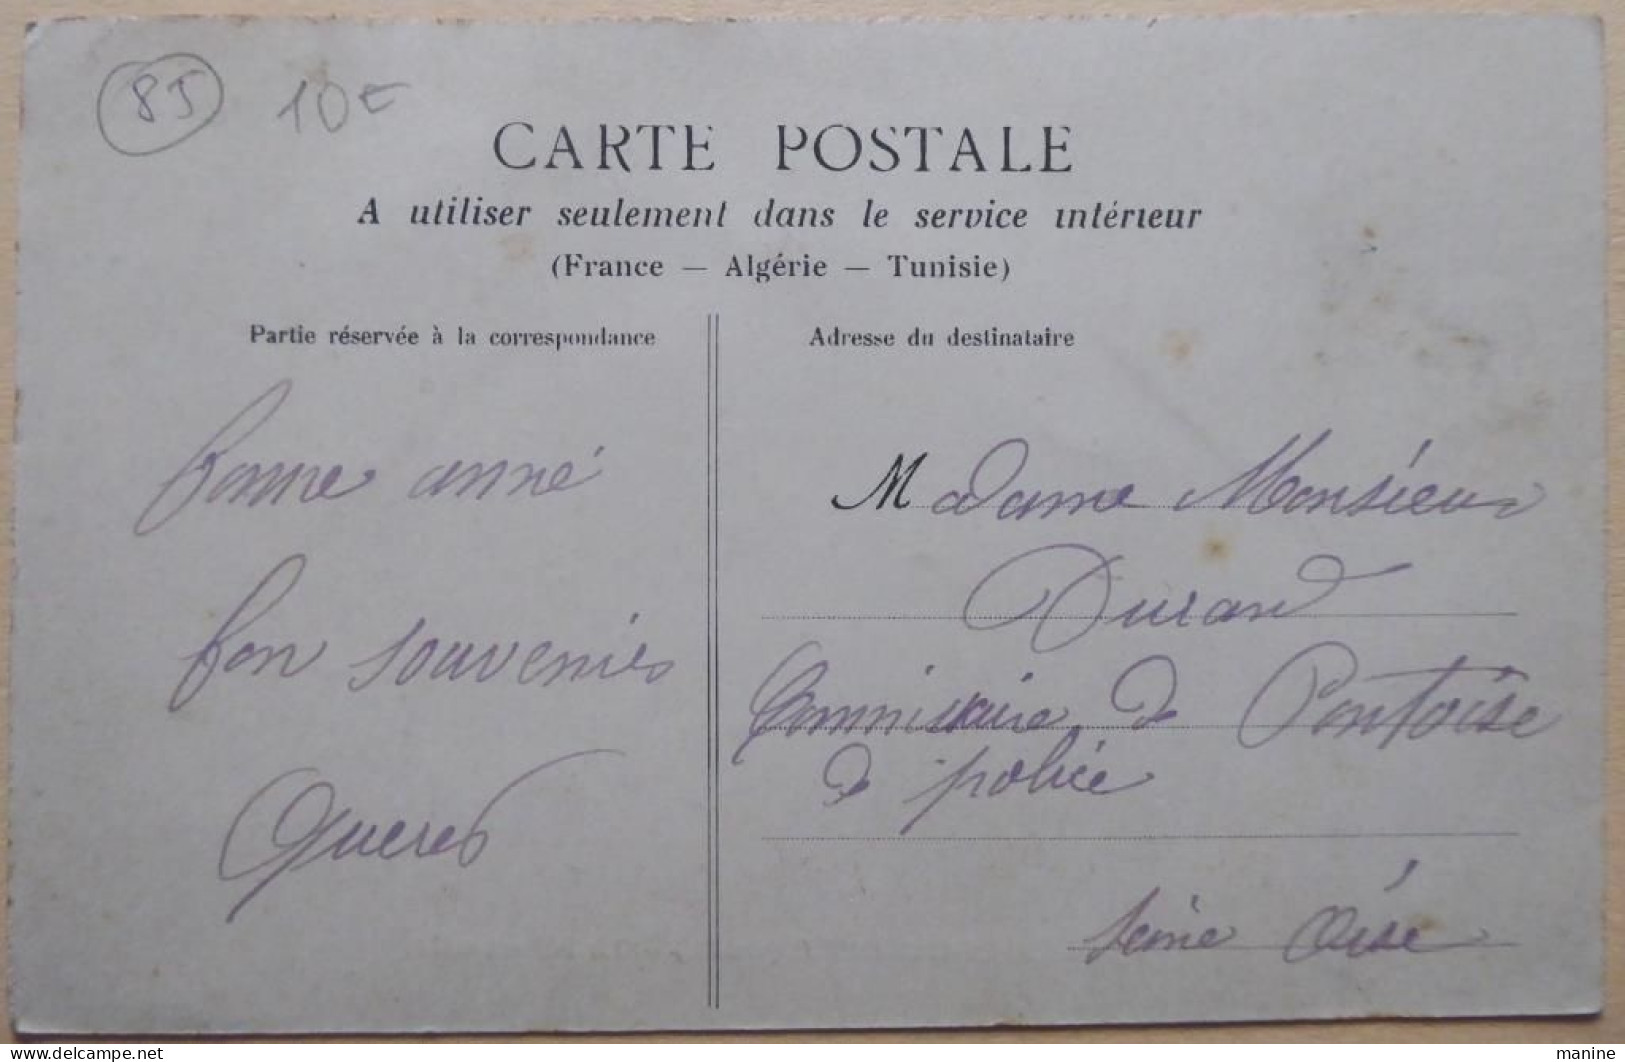 85 10€
CARTE POSTALE
A utiliser seulement dans le service intérieur
(France — Algérie — Tunisie)
Partie réservée à la correspondance
Adresse du destinataire
bonne anné
bon souvenirs
Madame Monsieur
Durand
Commissaire de Pontoise
de police
Seine Oise
manine